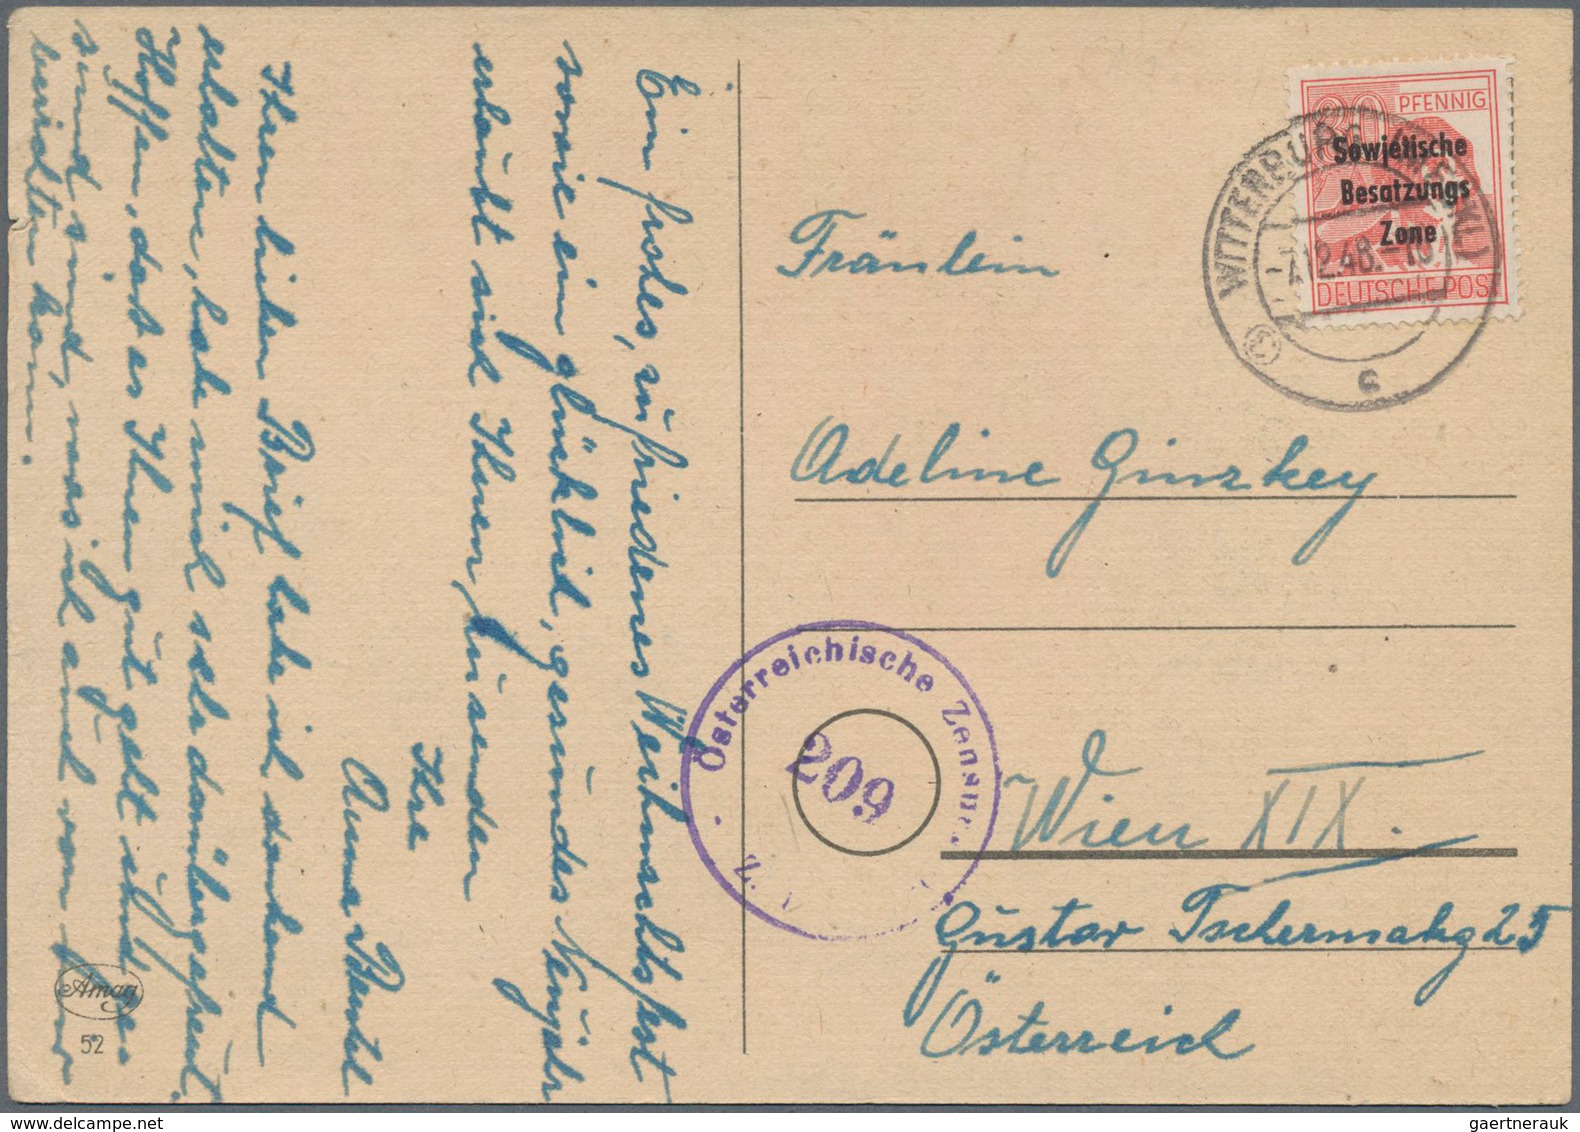 Ein frohes, zufriedenes Weihnachtsfest
sowie ein glücklich, gesundes Neujahr
erlaubt sich Ihnen, zu senden
Ihre
Anna
Ihren lieben Brief habe ich dankend
erhalten, habe mich sehr darüber gefreut.
Hoffen, dass es Ihnen gut geht und
sind, was ich auch von
berichten kann.
Amag
52
80 PFENNIG
Sowjetische
Besatzungs
Zone
DEUTSCHE POST
WITTENBURG (MECKL)
7.12.48.-16
c
Fräulein
Adeline Ginzkey
Wien XIX.
Gustav Tschermakg 25
Österreich
Österreichische Zensur
209
gaertnerauk @ delcampe.net